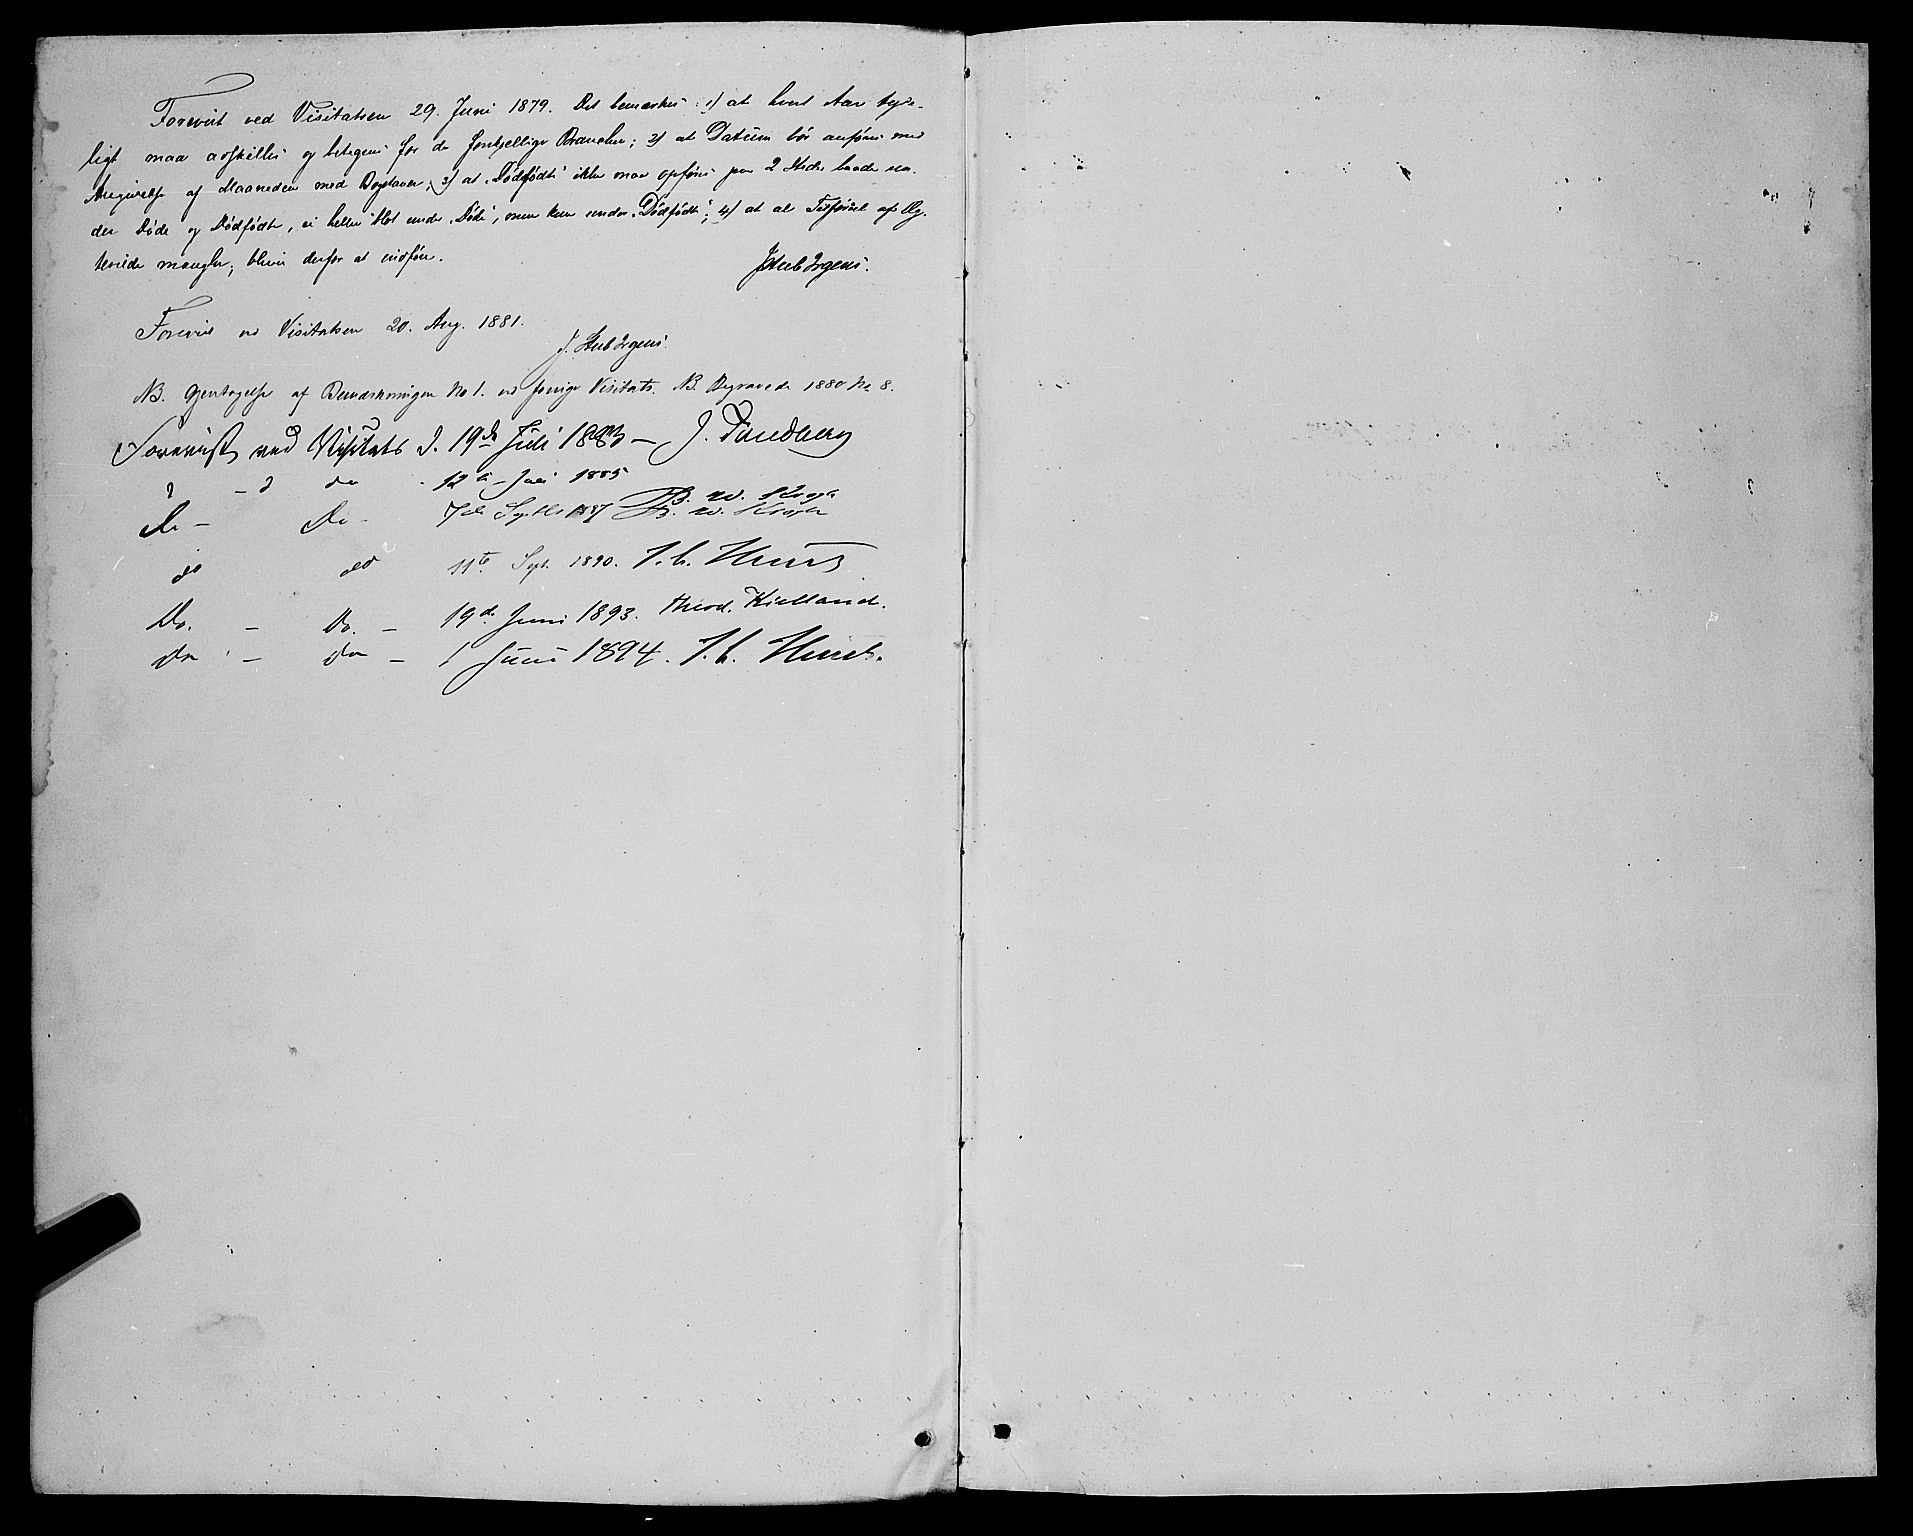 Forevist ved Visitatsen 29. Juni 1879. Det bemærkes: 1) at hvert Aar tyde-
ligt maa adskilles og betegnes for de forskjellige Brancher; 2) at Datum bør anføres med
Angivelse af Maaneden med Bogstaver; 3) at "Dødfødte" ikke maa opføres paa 2 Steder baade un-
der Døde og Dødfødte, ei heller blot under "Døde", men kun under "Dødfødte"; 4) at al Tilførsel af Æg-
teviede mangler; bliver derfor at indføre.
J Steb Irgens.
Forevist ved Visitatsen 20. Aug. 1881.
J. Steb Irgens.
NB. Gjentagelse af Bemærkningen No 1. ved forrige Visitats. NB. Begravede 1880 No 8.
Forevist ved Visitats d. 19de Juli 1883 — J. Sandberg
do 12te Juli 1885
Do — Do — 7de Septbr 1887 W. Krogh
do do 11te Sept. 1890.
Do. — Do. — 19de Juni 1893. Theod. Kielland.
Do — Do — 1 Juni 1894.